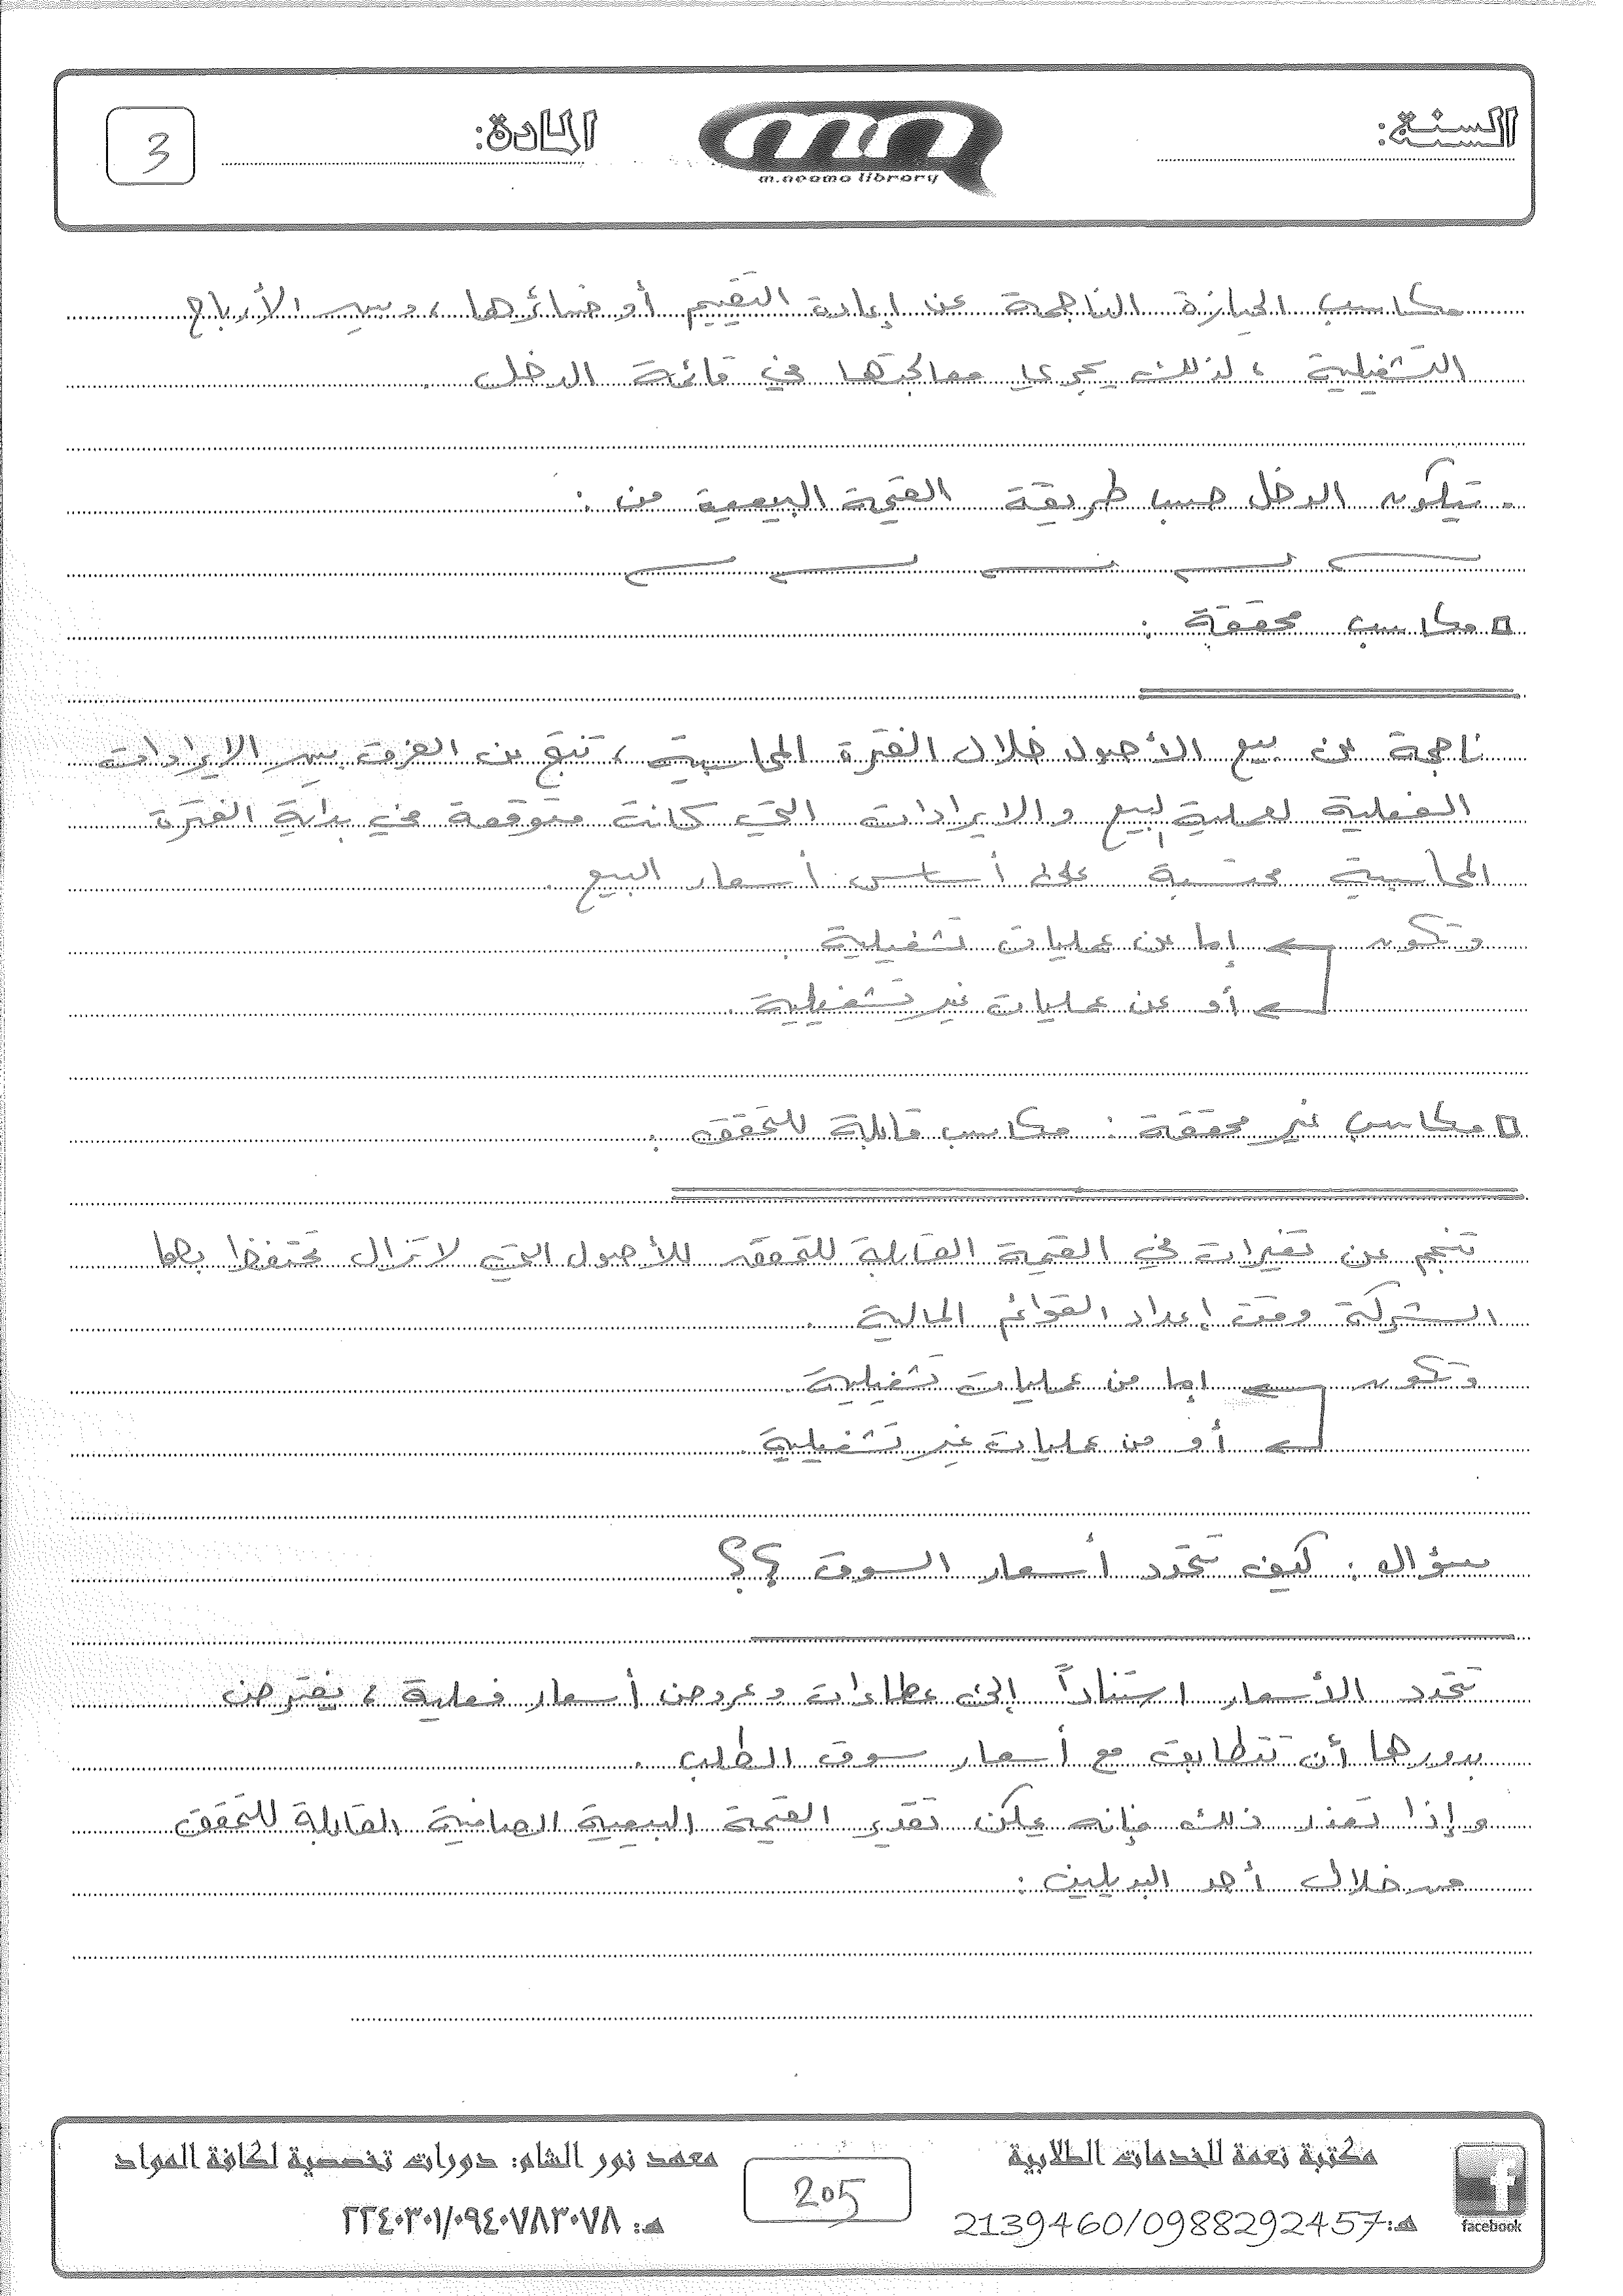 السنة:
m.neama library
المادة:
3
مكاسب الحيازة الناجمة عن إعادة التقييم أو خسائرها ، وبين الأرباح
التشغيلية ، لذلك يجري معالجتها في قائمة الدخل .
. يتكون الدخل حسب طريقة القيمة البيعية من :
مكاسب محققة :
ناجمة عن بيع الأصول خلال الفترة المحاسبية ، تنتج من الفرق بين الايرادات
الفعلية لعملية البيع والايرادات التي كانت متوقعة في بداية الفترة
المحاسبية محتسبة على أساس أسعار البيع .
وتكون ← إما عن عمليات تشغيلية .
← أو عن عمليات غير تشغيلية .
مكاسب غير محققة : مكاسب قابلة للتحقق :
تنجم عن تغيرات في القيمة القابلة للتحقق للأصول التي لا تزال تحتفظ بها
الشركة وقت إعداد القوائم المالية .
وتكون ← إما من عمليات تشغيلية .
← أو من عمليات غير تشغيلية .
سؤال : كيف تتحدد أسعار السوق ؟؟
تتحدد الأسعار استناداً إلى عطاءات وعروض أسعار فعلية ، يفترض
بدورها أن تتطابق مع أسعار سوق الطلب .
وإذا تعذر ذلك فإنه يمكن تقدير القيمة البيعية الصافية القابلة للتحقق
من خلال أحد البديلين :
مكتبة نعمة للخدمات الطلابية
هـ: 2139460/0988292457
facebook
205
معهد نور الشام: دورات تخصصية لكافة المواد
هـ: ٢٢٤٠٣٠١/٠٩٤٠٧٨٣٠٧٨